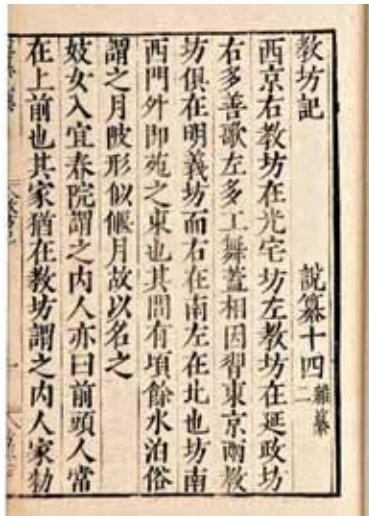 教坊記 說纂十四 雜纂二
西京右教坊在光宅坊左教坊在延政坊
右多善歌左多工舞蓋相因習東京兩教
坊俱在明義坊而右在南左在北也坊南
西門外即苑之東也其間有頃餘水泊俗
謂之月陂形似偃月故以名之
妓女入宜春院謂之內人亦曰前頭人常
在上前也其家猶在教坊謂之內人家勑